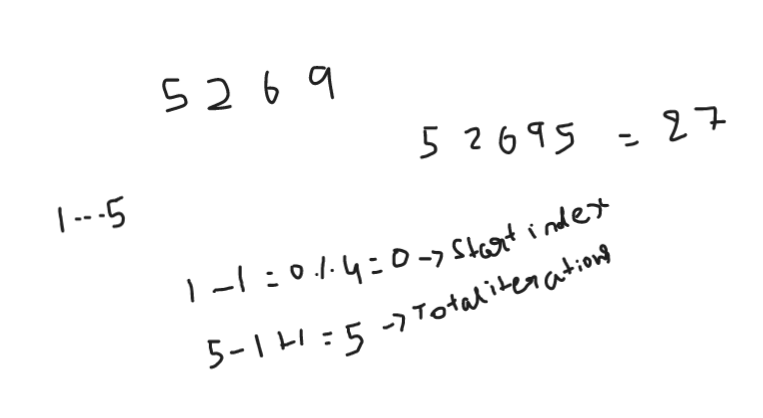 5 2 6 9
5 2 6 9 5 = 27
1---5
1-1=0%4=0→Start index
5-1+1=5→Total iterations